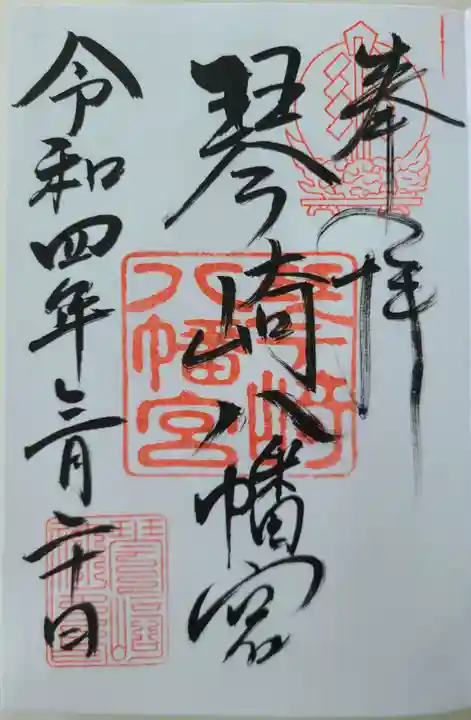 奉拝
琴崎八幡宮
琴崎
八幡宮
令和四年三月二十日